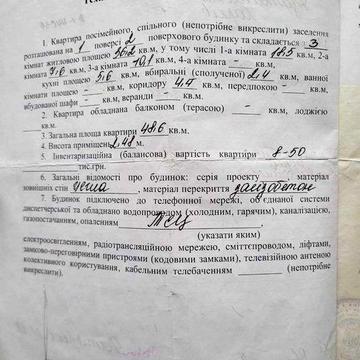 1. Квартира посімейного спільного (непотрібне викреслити) заселення
розташована на 1 поверсі 2 поверхового будинку та складається з 3
кімнат житловою площею 36,2 кв.м, у тому числі 1-а кімната 18,5 кв.м, 2-а
кімната 7,6 кв.м, 3-а кімната 10,1 кв.м, 4-а кімната - кв.м,
кухні площею 5,6 кв.м, вбиральні (сполученої) 2,4 кв.м, ванної
кімнати площею - кв.м, коридору 4,4 кв.м, передпокою - кв.м,
вбудованої шафи - кв.м, веранди - кв.м.
2. Квартира обладнана балконом (терасою) - кв.м, лоджією
кв.м.
3. Загальна площа квартири 48,6 кв.м.
4. Висота приміщень 2,48 м.
5. Інвентаризаційна (балансова) вартість квартири 8-50
тис.грн.
6. Загальні відомості про будинок: серія проекту, матеріал
зовнішніх стін цегла, матеріал перекриття залізобетон
7. Будинок підключено до телефонної мережі, об'єднаної системи
диспетчерської та обладнано водопроводом (холодним, гарячим), каналізацією,
газопостачанням, опаленням ТЕЦ
(указати яким)
електроосвітленням, радіотрансляційною мережею, сміттєпроводом, ліфтами,
замково-переговорними пристроями (кодовими замками), телевізійною антеною
колективного користування, кабельним телебаченням (непотрібне
викреслити).